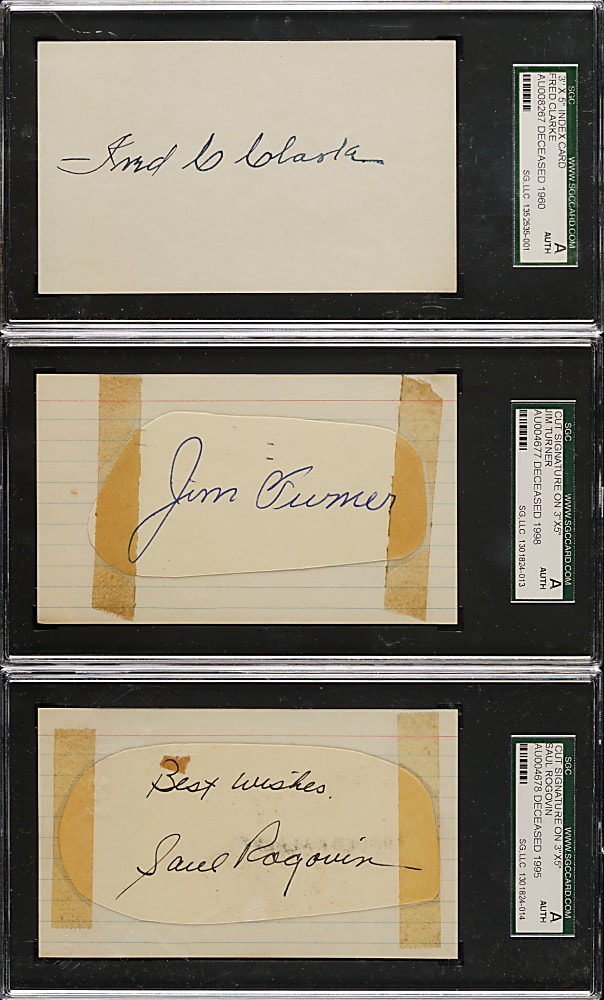 Fred C Clarke
SGC WWW.SGCCARD.COM
3" X 5" INDEX CARD
FRED CLARKE
AU008267 DECEASED 1960
A
AUTH
SG, LLC 1352535-001
Jim Turner
SGC WWW.SGCCARD.COM
CUT SIGNATURE ON 3"X5"
JIM TURNER
AU004677 DECEASED 1998
A
AUTH
SG, LLC 1301824-013
Best Wishes.
Saul Rogovin
SGC WWW.SGCCARD.COM
CUT SIGNATURE ON 3"X5"
SAUL ROGOVIN
AU004678 DECEASED 1995
A
AUTH
SG, LLC 1301824-014